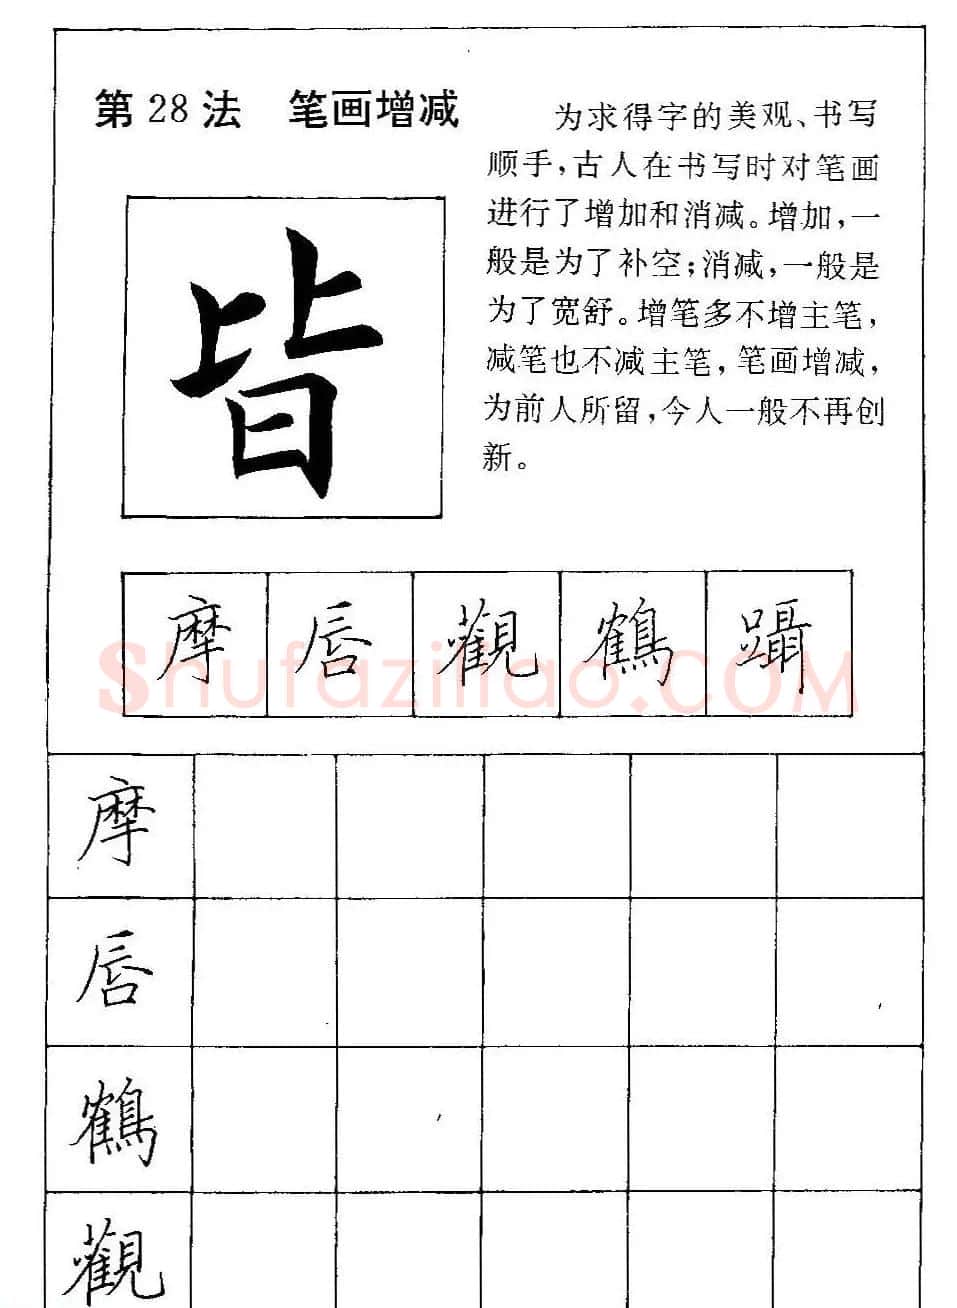 第28法 笔画增减
为求得字的美观、书写
顺手，古人在书写时对笔画
进行了增加和消减。增加，一
般是为了补空；消减，一般是
为了宽舒。增笔多不增主笔，
减笔也不减主笔，笔画增减，
为前人所留，今人一般不再创
新。
皆
摩 唇 觀 鶴 躡
shufaziliao.com
摩
唇
鶴
觀